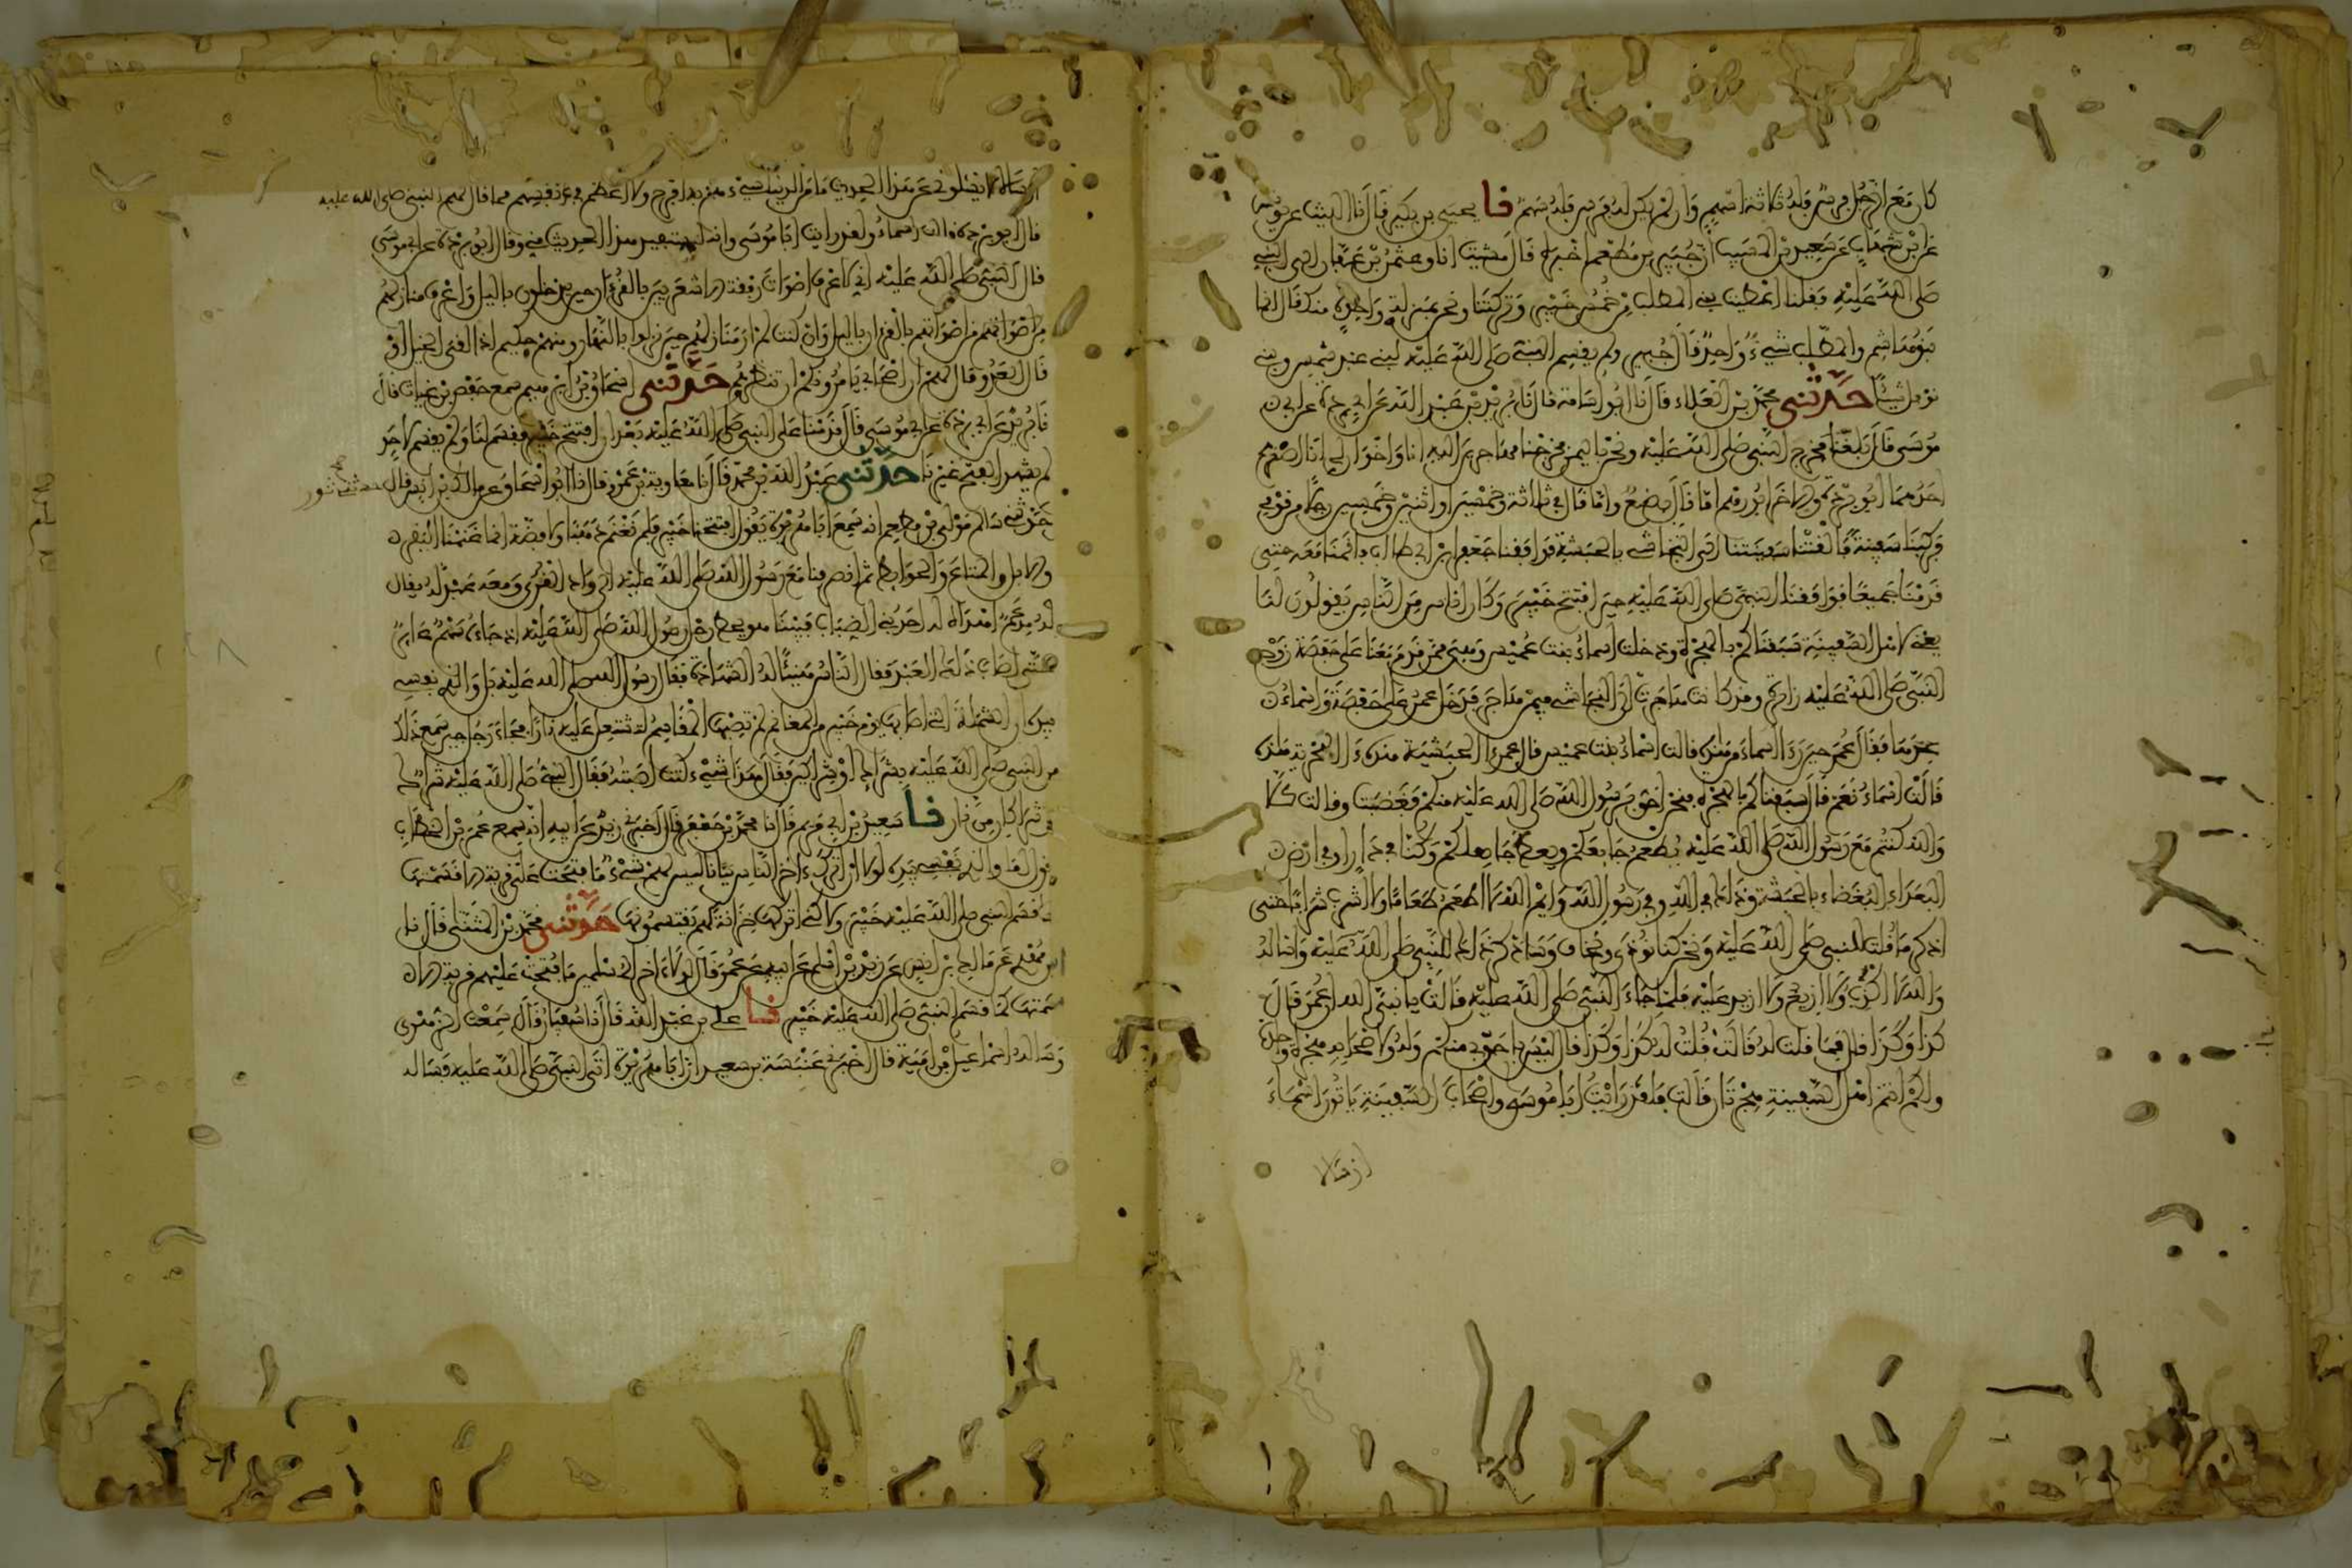 كان مع الرجل فرس فله ثلاثة اسهم وان لم يكن له فرس فله سهم نا يحيى بن بكير قال نا الليث عن يونس
عن ابن شهاب عن سعيد بن المسيب ان جبير بن مطعم اخبره قال مشيت انا وعثمن بن عفان الى النبي
صلى الله عليه فقلنا اعطيت بني المطلب من خمس خيبر وتركتنا ونحن بمنزلة واحدة منك فقال انما
بنو هاشم والمطلب شيء واحد قال جبير ولم يقسم النبي صلى الله عليه لبني عبد شمس وبني
نوفل شيئا حدثني محمد بن العلاء قال نا ابو اسامة قال نا بريد بن عبد الله عن ابي بردة عن ابي
موسى قال بلغنا مخرج النبي صلى الله عليه ونحن باليمن فخرجنا مهاجرين اليه انا واخوان لي انا اصغرهم
احدهما ابو بردة والاخر ابو رهم اما قال بضع واما قال في ثلاثة وخمسين او اثنين وخمسين رجلا من قومي
فركبنا سفينة فالقتنا سفينتنا الى النجاشي بالحبشة فوافقنا جعفر بن ابي طالب فاقمنا معه حتى
قدمنا جميعا فوافقنا النبي صلى الله عليه حين افتتح خيبر وكان اناس من الناس يقولون لنا
يعني لاهل السفينة سبقناكم بالهجرة ودخلت اسماء بنت عميس وهي ممن قدم معنا على حفصة زوج
النبي صلى الله عليه زائرة وقد كانت هاجرت الى النجاشي فيمن هاجر فدخل عمر على حفصة واسماء
عندها فقال عمر حين رءا اسماء من هذه قالت اسماء بنت عميس قال عمر ءالحبشية هذه ءالبحرية هذه
قالت اسماء نعم قال سبقناكم بالهجرة فنحن احق برسول الله صلى الله عليه منكم فغضبت وقالت كلا
والله كنتم مع رسول الله صلى الله عليه يطعم جائعكم ويعظ جاهلكم وكنا في دار او في ارض
البعداء البغضاء بالحبشة وذلك في الله وفي رسول الله وايم الله لا اطعم طعاما ولا اشرب شرابا حتى
اذكر ما قلت للنبي صلى الله عليه ونحن كنا نوذى ونخاف وساذكر ذلك للنبي صلى الله عليه واساله
والله لا اكذب ولا ازيغ ولا ازيد عليه فلما جاء النبي صلى الله عليه قالت يا نبي الله ان عمر قال
كذا وكذا قال فما قلت له قالت قلت له كذا وكذا قال ليس باحق بي منكم وله ولاصحابه هجرة واحدة
ولكم انتم اهل السفينة هجرتان قالت فلقد رايت ابا موسى واصحاب السفينة ياتون اسماء
ارسالا
ارسالا يسئلوني عن هذا الحديث ما من الدنيا شيء هم به افرح ولا اعظم في انفسهم مما قال لهم النبي صلى الله عليه
قال ابو بردة قالت اسماء ولقد رايت ابا موسى وانه ليستعيد هذا الحديث مني وقال ابو بردة عن ابي موسى
قال النبي صلى الله عليه اني لاعرف اصوات رفقة الاشعريين بالقرءان حين يدخلون بالليل واعرف منازلهم
من اصواتهم بالقرءان بالليل وان كنت لم ار منازلهم حين نزلوا بالنهار ومنهم حكيم اذا لقي الخيل او
قال العدو قال لهم ان اصحابي يامرونكم ان تنظروهم حدثني اسحاق بن ابرهيم سمع حفص بن غياث قال
نا بريد عن ابي بردة عن ابي موسى قال قدمنا على النبي صلى الله عليه بعد ان افتتح خيبر فقسم لنا ولم يقسم لاحد
لم يشهد الفتح غيرنا حدثني عبد الله بن محمد قال نا معاوية بن عمرو قال نا ابو اسحاق عن مالك بن انس قال حدثني ثور
حدثني سالم مولى ابن مطيع انه سمع ابا هريرة يقول افتتحنا خيبر فلم نغنم ذهبا ولا فضة انما غنمنا البقر
والابل والمتاع والحوائط ثم انصرفنا مع رسول الله صلى الله عليه الى وادي القرى ومعه عبد له يقال
له مدعم اهداه له احد بني الضباب فبينما هو يحط رحل رسول الله صلى الله عليه اذ جاءه سهم عاير
حتى اصاب ذلك العبد فقال الناس هنيئا له الشهادة فقال رسول الله صلى الله عليه بل والذي نفسي
بيده ان الشملة التي اصابها يوم خيبر من المغانم لم تصبها المقاسم لتشتعل عليه نارا فجاء رجل حين سمع ذلك
من النبي صلى الله عليه بشراك او بشراكين فقال هذا شيء كنت اصبته فقال النبي صلى الله عليه شراك
او شراكان من نار نا سعيد بن ابي مريم قال انا محمد بن جعفر قال اخبرني زيد عن ابيه انه سمع عمر بن الخطاب
يقول اما والذي نفسي بيده لولا ان اترك ءاخر الناس ببانا ليس لهم شيء ما فتحت علي قرية الا قسمتها
كما قسم النبي صلى الله عليه خيبر ولاكني اتركها خزانة لهم يقتسمونها حدثني محمد بن المثنى قال نا
ابن مهدي عن مالك بن انس عن زيد بن اسلم عن ابيه عن عمر قال لولا ءاخر المسلمين ما فتحت عليهم قرية الا
قسمتها كما قسم النبي صلى الله عليه خيبر نا علي بن عبد الله قال نا سفيان قال سمعت الزهري
وساله اسماعيل بن امية قال اخبرني عنبسة بن سعيد ان ابا هريرة اتى النبي صلى الله عليه فساله